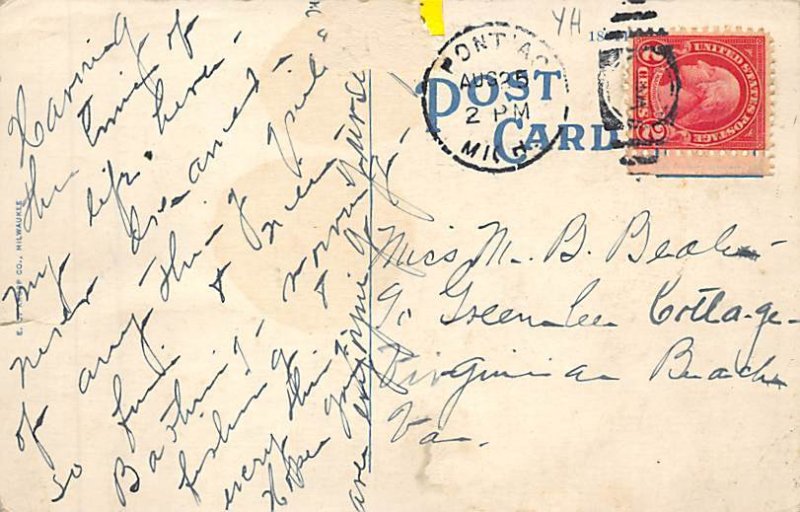 Having
the time of
my life here.
never dreamed
of any thing quite
so fine. & nice
Bathing-
fishing &
every thing
Hope
are enjoying
PONTIAC
AUG 25
2 PM
MICH.
POST
CARD
UNITED STATES POSTAGE
2 CENTS 2
YH
Miss M. B. Beale
Greenlee Cottage
Virginia Beach
Va.
CO., MILWAUKEE